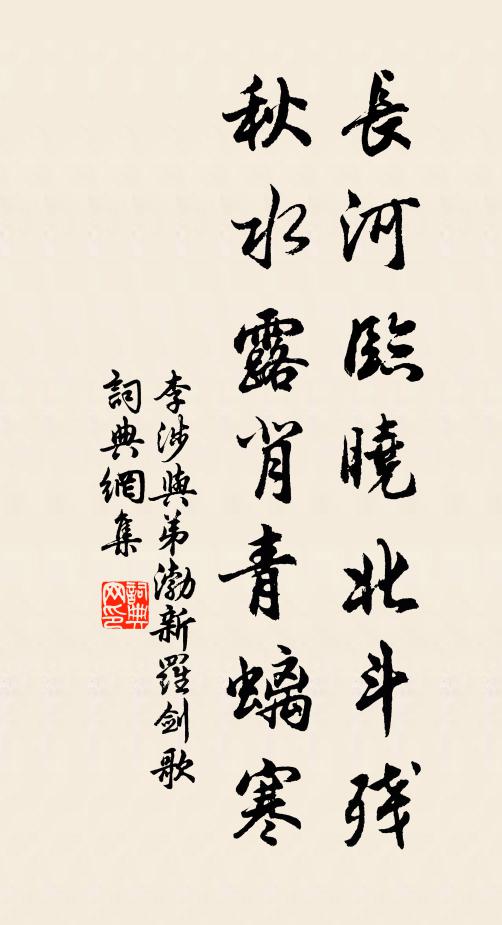 長河臨曉北斗殘
秋水露背青螭寒
李涉與弟渤新羅劍歌
詞典網集
詞典网印